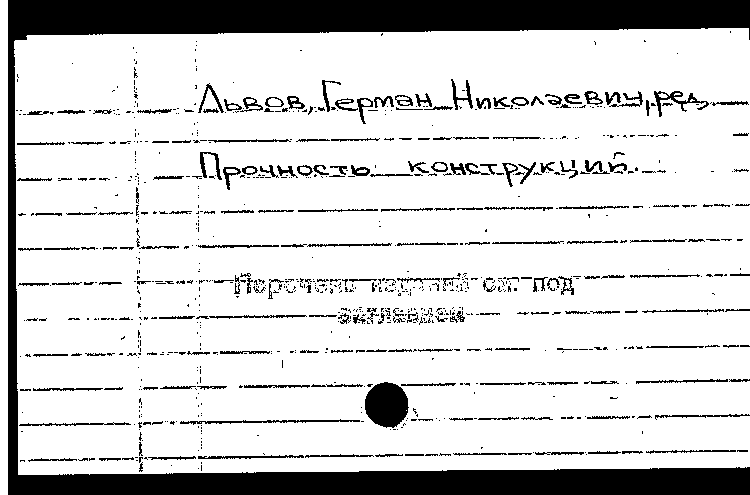 Львов, Герман Николаевич, ред.
Прочность конструкций.
Перечень изданий см. под
заглавием